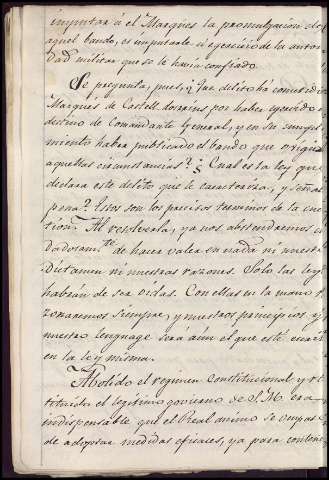 imputar á el Marques la promulgacion de
aquel bando, es imputarle el egercicio de la autori
dad militar que se le havia confiado.
Se pregunta, pues, ¿Que delito há cometido
Marques de Castell-dosrrius por haber egercido
destino de Comandante General, y en su cumpli
miento haber publicado el bando que
aquellas circunstancias? ¿Cual es la ley que
declara este delito que le caracteriza, y señal
pena? Esos son los precisos terminos de la cues
tion. Al resolverla, ya nos abstendremos
dadosam.te de hacer valer en nada ni nuestro
Dictamen ni nuestras razones. Solo las ley
habrán de ser oidas. Con ellas en la mano
zonaremos siempre, y nuestros principios, y
nuestro lenguage será aún el que esté
en la ley misma.
Abolido el regimen Constitucional y res
tituido el legitimo govierno de S. M. era
indispensable que el Real animo se
de adoptar medidas eficaces, ya para contene